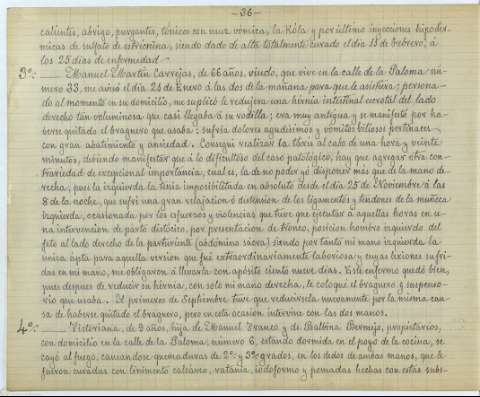 -36-
calientes, abrigo, purgantes, tónicos con nuez vómica, la Kola y por último inyecciones hipodér-
micas de sulfato de estricnina, siendo dado de alta totalmente curado el día 13 de Febrero, á
los 25 dias de enfermedad
3º: Manuel Martin Carrejas, de 66 años, viudo, que vive en la calle de la Paloma nú-
mero 33, me avisó el día 28 de Enero á las dos de la mañana para que le asistiera: persona-
do al momento en su domicilio, me suplicó le redujera una hernia intestinal escrotal del lado
derecho tan voluminosa que casi llegaba á su rodilla; era muy antigua y se manifestó por ha-
berse quitado el braguero que usaba: sufría dolores agudisimos y vómitos biliosos pertinaces
con gran abatimiento y ansiedad. Conseguí realizar la taxis al cabo de una hora y veinte
minutos, debiendo manifestar que á lo dificultoso del caso patológico, hay que agregar otra con-
trariedad de excepcional importancia, cual es, la de no poder yo disponer más que de la mano de-
recha, pues la izquierda la tenia imposibilitada en absoluto desde el dia 25 de Noviembre á las
8 de la noche, que sufrí una gran relajación ó distensión de los ligamentos y tendones de la muñeca
izquierda, ocasionada por los esfuerzos y violencias que tuve que ejecutar á aquellas horas en u-
na intervención de parto distócico, por presentación de tronco, posicion hombro izquierdo del
feto al lado derecho de la parturienta (abdómino sacra) siendo por tanto mi mano izquierda la
única apta para aquella versión que fué extraordinariamente laboriosa y cuyas lesiones sufri-
das en mi mano, me obligaron á llevarla con apósito ciento nueve dias. Este enfermo quedó bien,
pues despues de reducir su hernia, con sólo mi mano derecha, le coloqué el braguero y suspenso-
rio que usaba. El primeros de Septiembre tuve que reducirsela nuevamente por la misma cau-
sa de haberse quitado el braguero, pero en esta ocasión intervine con las dos manos.
4º: Victoriana, de 2 años, hija de Manuel Franco y de Balbina Bermejo, propietarios,
con domicilio en la calle de la Paloma, número 6, estando dormida en el poyo de la cocina, se
cayó al fuego, causandose quemaduras de 2º y 3º grados, en los dedos de ambas manos, que la
fueron curadas con linimento calcáreo, ratania, iodoformo y pomadas hechas con estas subs-